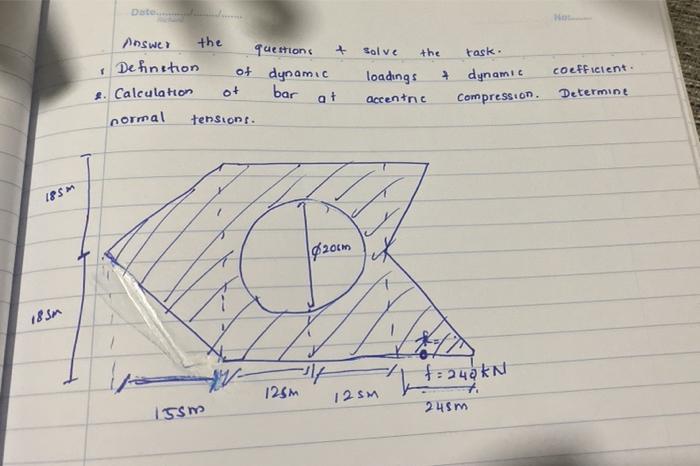 Date
No:
Answer the questions + solve the task.
1 Definition of dynamic loadings + dynamic coefficient.
2. Calculation of bar at accentric compression. Determine
normal tensions.
18sm
ϕ20sm
18sm
f = 240 kN
15sm
12sm
12sm
24sm